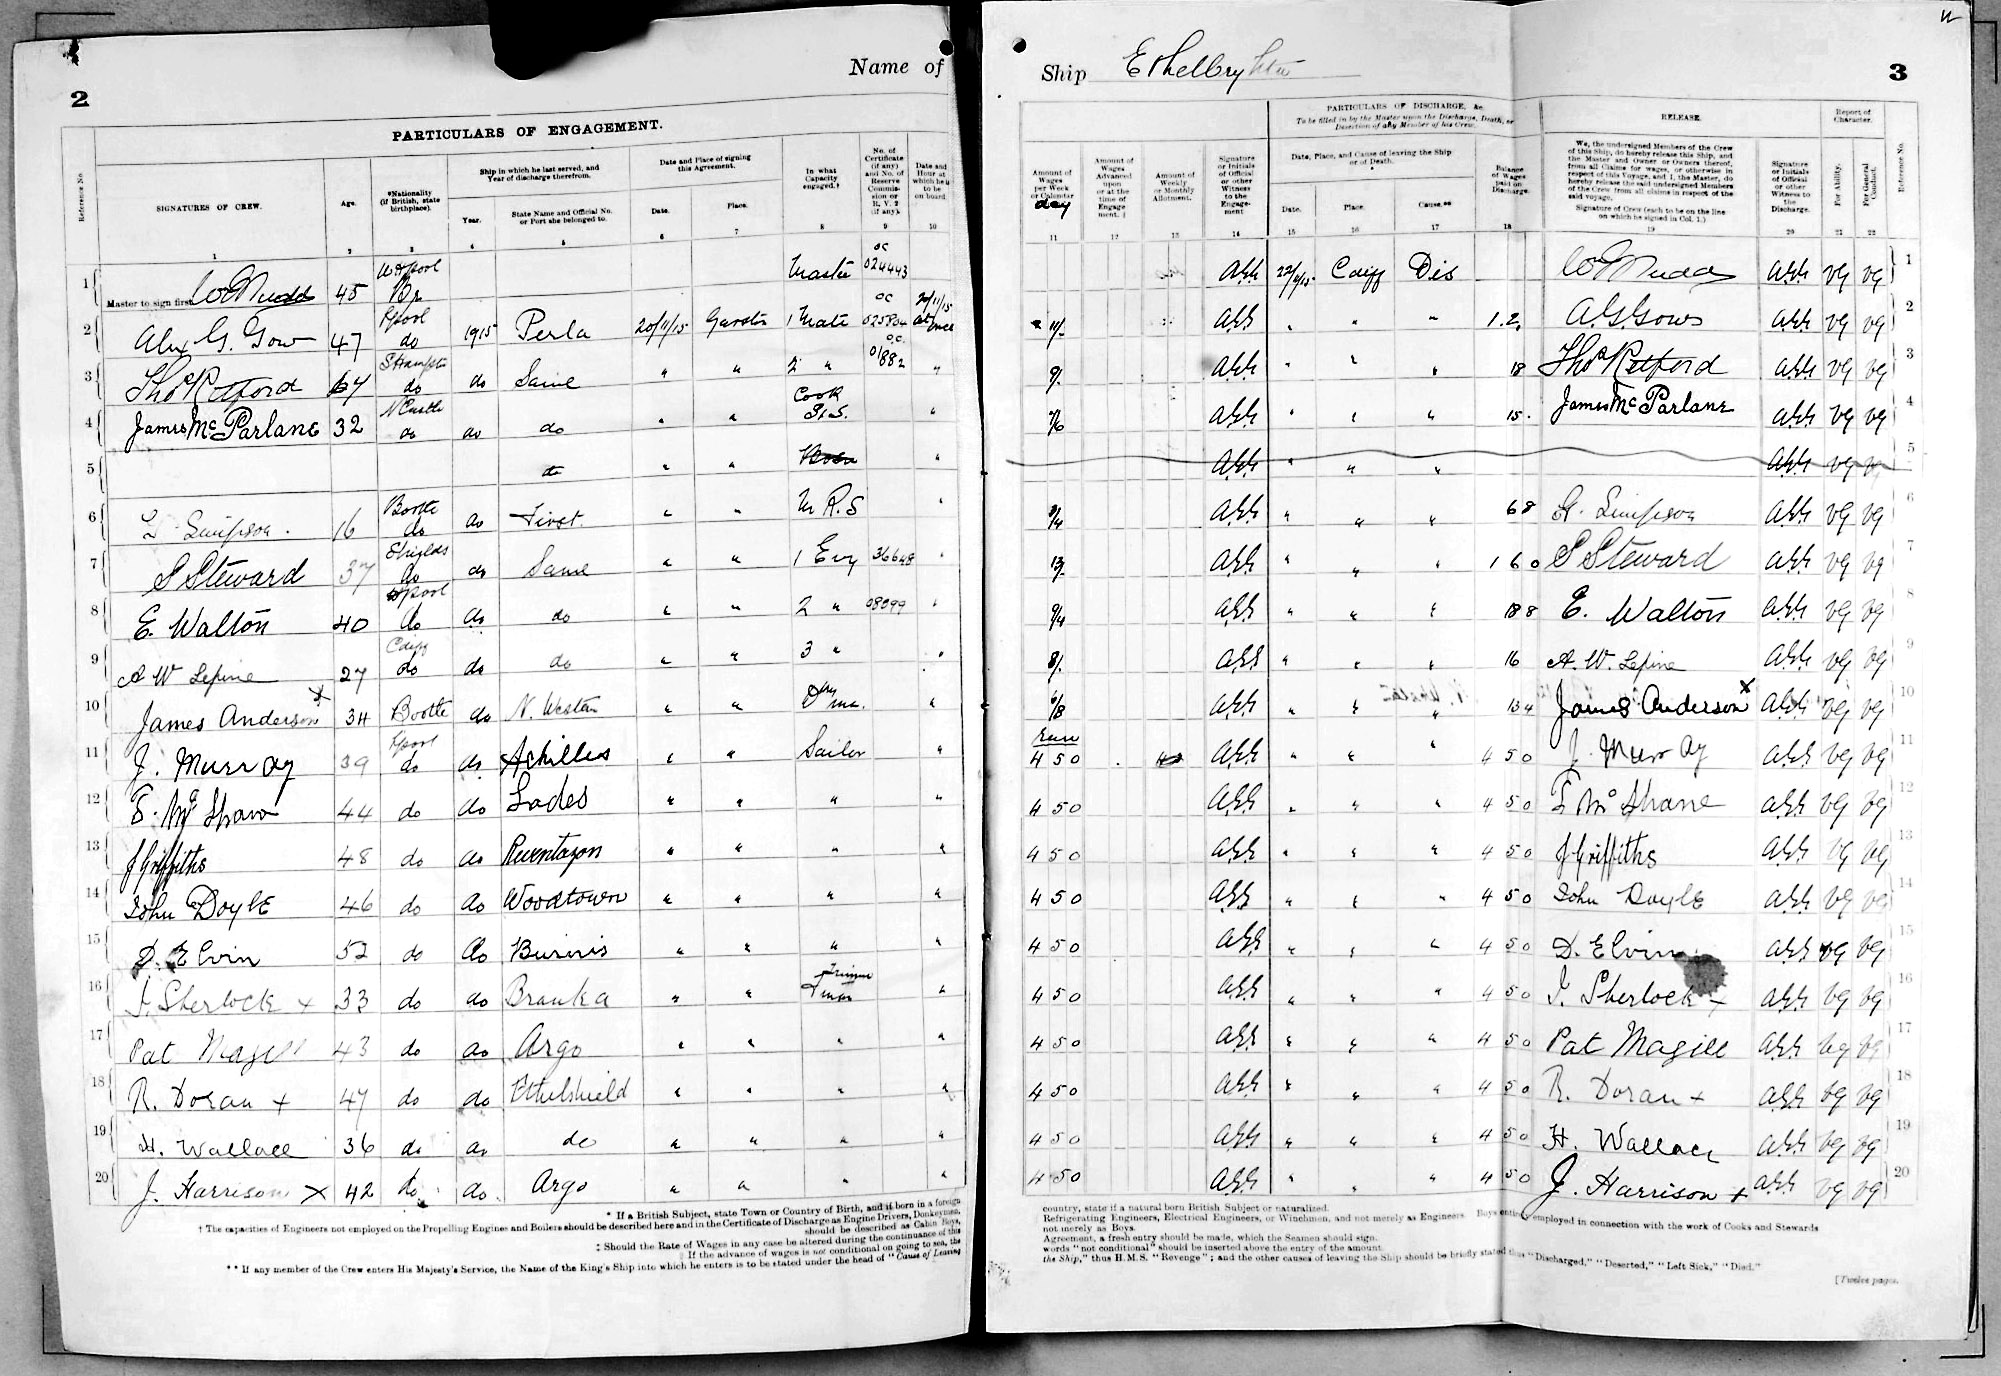 2
Name of
PARTICULARS OF ENGAGEMENT.
Reference No.
SIGNATURES OF CREW.
Age.
*Nationality (if British, state birthplace).
Ship in which he last served, and Year of discharge therefrom.
Year.
State Name and Official No. or Port she belonged to.
Date and Place of signing this Agreement.
Date.
Place.
In what Capacity engaged.†
No. of Certificate (if any) and No. of Reserve Commission or R. V. 2 (if any).
Date and Hour at which he is to be on board
1 2 3 4 5 6 7 8 9 10
1 Master to sign first W Mudd 45 W Hpool Br Master OC 024443
2 Alex G. Gow 47 Lpool do 1915 Perla 20/11/15 Garston 1 Mate OC 025804 20/11/15 at once
3 Thos Retford 67 SHampton do do Same " " 2 " OC 01882 "
4 James McParlane 32 NCastle do do do " " Cook St.S. "
5 do " " Bosn "
6 Simpson. 16 Bootle do do First " " M R.S "
7 S Steward 37 Shields do do Same " " 1 Eng 36648 "
8 E. Walton 40 Hpool do do do " " 2 " 08099 "
9 A W Lepine 27 Cdiff do do do " " 3 " "
10 James Anderson x 34 Bootle do N. Western " " Dkyman. "
11 J. Murray 39 Lpool do do Achilles " " Sailor "
12 44 do do Lades " " " "
13 J Griffiths 48 do do Reventazon " " " "
14 John Doyle 46 do do Woodtown " " " "
15 D. Elvin 52 do do " " " "
16 Sherlock + 33 do do Branka " " Trimmer "
17 Pat Magill 43 do do Argo " " " "
18 R. Doran + 47 do do Ethelshield " " " "
19 H. Wallace 36 do do do " " " "
20 J. Harrison x 42 do do Argo " " " "
* If a British Subject, state Town or Country of Birth, and if born in a foreign
† The capacities of Engineers not employed on the Propelling Engines and Boilers should be described here and in the Certificate of Discharge as Engine Drivers, Donkeymen,
should be described as Cabin Boys,
‡ Should the Rate of Wages in any case be altered during the continuance of this
|| If the advance of wages is not conditional on going to sea, the
** If any member of the Crew enters His Majesty's Service, the Name of the King's Ship into which he enters is to be stated under the head of "Cause of Leaving
Ship Ethelbryhta
3
Amount of Wages per Week or Calendar day
Amount of Wages Advanced upon or at the time of Engagement. ‡
Amount of Weekly or Monthly Allotment.
Signature or Initials of Official or other Witness to the Engagement
PARTICULARS OF DISCHARGE, &c.
To be filled in by the Master upon the Discharge, Death, or Desertion of any Member of his Crew.
Date, Place, and Cause of leaving the Ship or of Death.
Date.
Place.
Cause.**
Balance of Wages paid on Discharge.
RELEASE.
We, the undersigned Members of the Crew of this Ship, do hereby release this Ship, and the Master and Owner or Owners thereof, from all Claims for wages, or otherwise in respect of this Voyage, and I, the Master, do hereby release the said undersigned Members of the Crew from all claims in respect of the said voyage.
Signature of Crew (each to be on the line on which he signed in Col. 1.)
Signature or Initials of Official or other Witness to the Discharge.
Report of Character.
For Ability.
For General Conduct.
Reference No.
11 12 13 14 15 16 17 18 19 20 21 22
22/11/15 Cdiff Dis W Mudd VG VG 1
11/- " " " 1.2. A.G.Gow VG VG 2
9/- " " " 18 Thos Retford VG VG 3
7/6 " " " 15. James McParlane VG VG 4
" " " VG 5
" " " 6 8 Simpson VG VG 6
13/- " " " 1 6 0 S Steward VG VG 7
9/4 " " " 18 8 E. Walton VG VG 8
8/- " " " 16 A. W. Lepine VG VG 9
6/8 " " " 13 4 James Anderson x VG VG 10
Run 4 5 0 " " " 4 5 0 J. Murray VG VG 11
4 5 0 " " " 4 5 0 McShane VG VG 12
4 5 0 " " " 4 5 0 J Griffiths VG VG 13
4 5 0 " " " 4 5 0 John Doyle VG VG 14
4 5 0 " " " 4 5 0 D. Elvin VG VG 15
4 5 0 " " " 4 5 0 Sherlock + VG VG 16
4 5 0 " " " 4 5 0 Pat Magill VG VG 17
4 5 0 " " " 4 5 0 R. Doran + VG VG 18
4 5 0 " " " 4 5 0 H. Wallace VG VG 19
4 5 0 " " " 4 5 0 J. Harrison + VG VG 20
country, state if a natural born British Subject or naturalized.
Refrigerating Engineers, Electrical Engineers, or Winchmen, and not merely as Engineers. Boys entirely employed in connection with the work of Cooks and Stewards
not merely as Boys.
Agreement, a fresh entry should be made, which the Seamen should sign.
words "not conditional" should be inserted above the entry of the amount.
the Ship," thus H.M.S. "Revenge"; and the other causes of leaving the Ship should be briefly stated thus "Discharged," "Deserted," "Left Sick," "Died."
[Twelve pages.